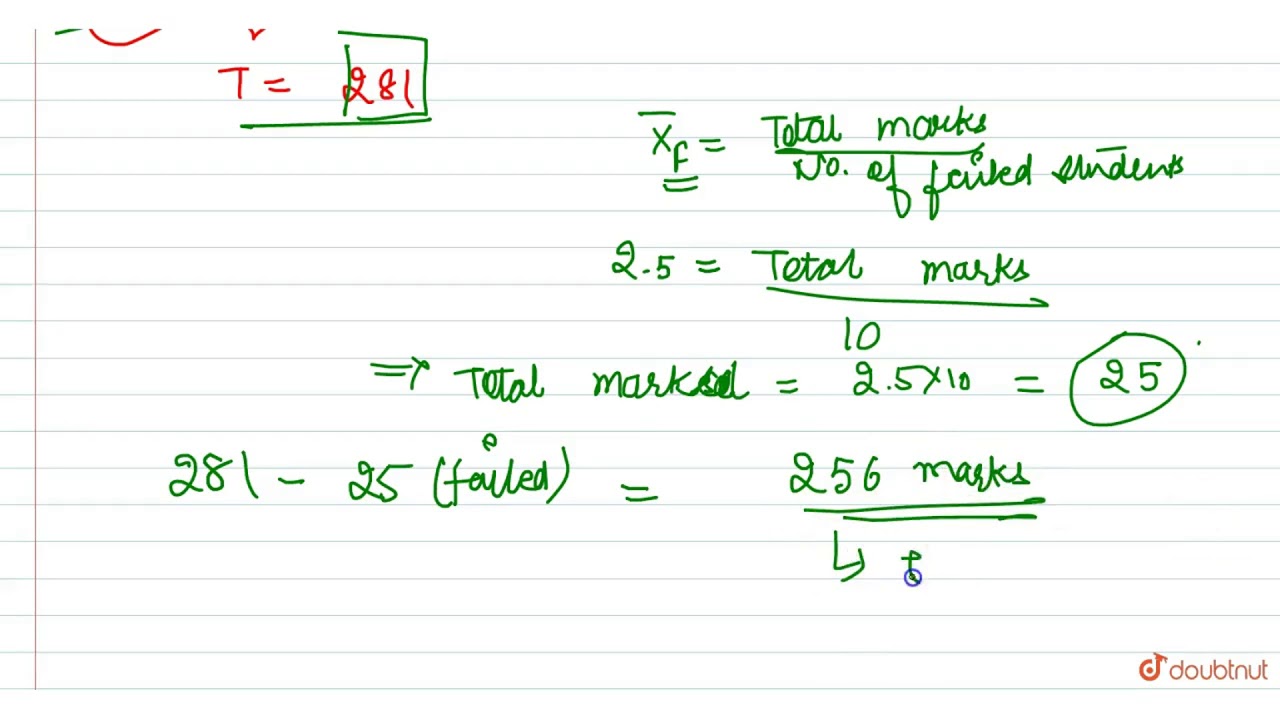 T = 281
X̄f = Total marks / No. of failed students
2.5 = Total marks / 10
⇒ Total marks = 2.5×10 = 25
281 - 25 (failed) = 256 marks
↳
doubtnut